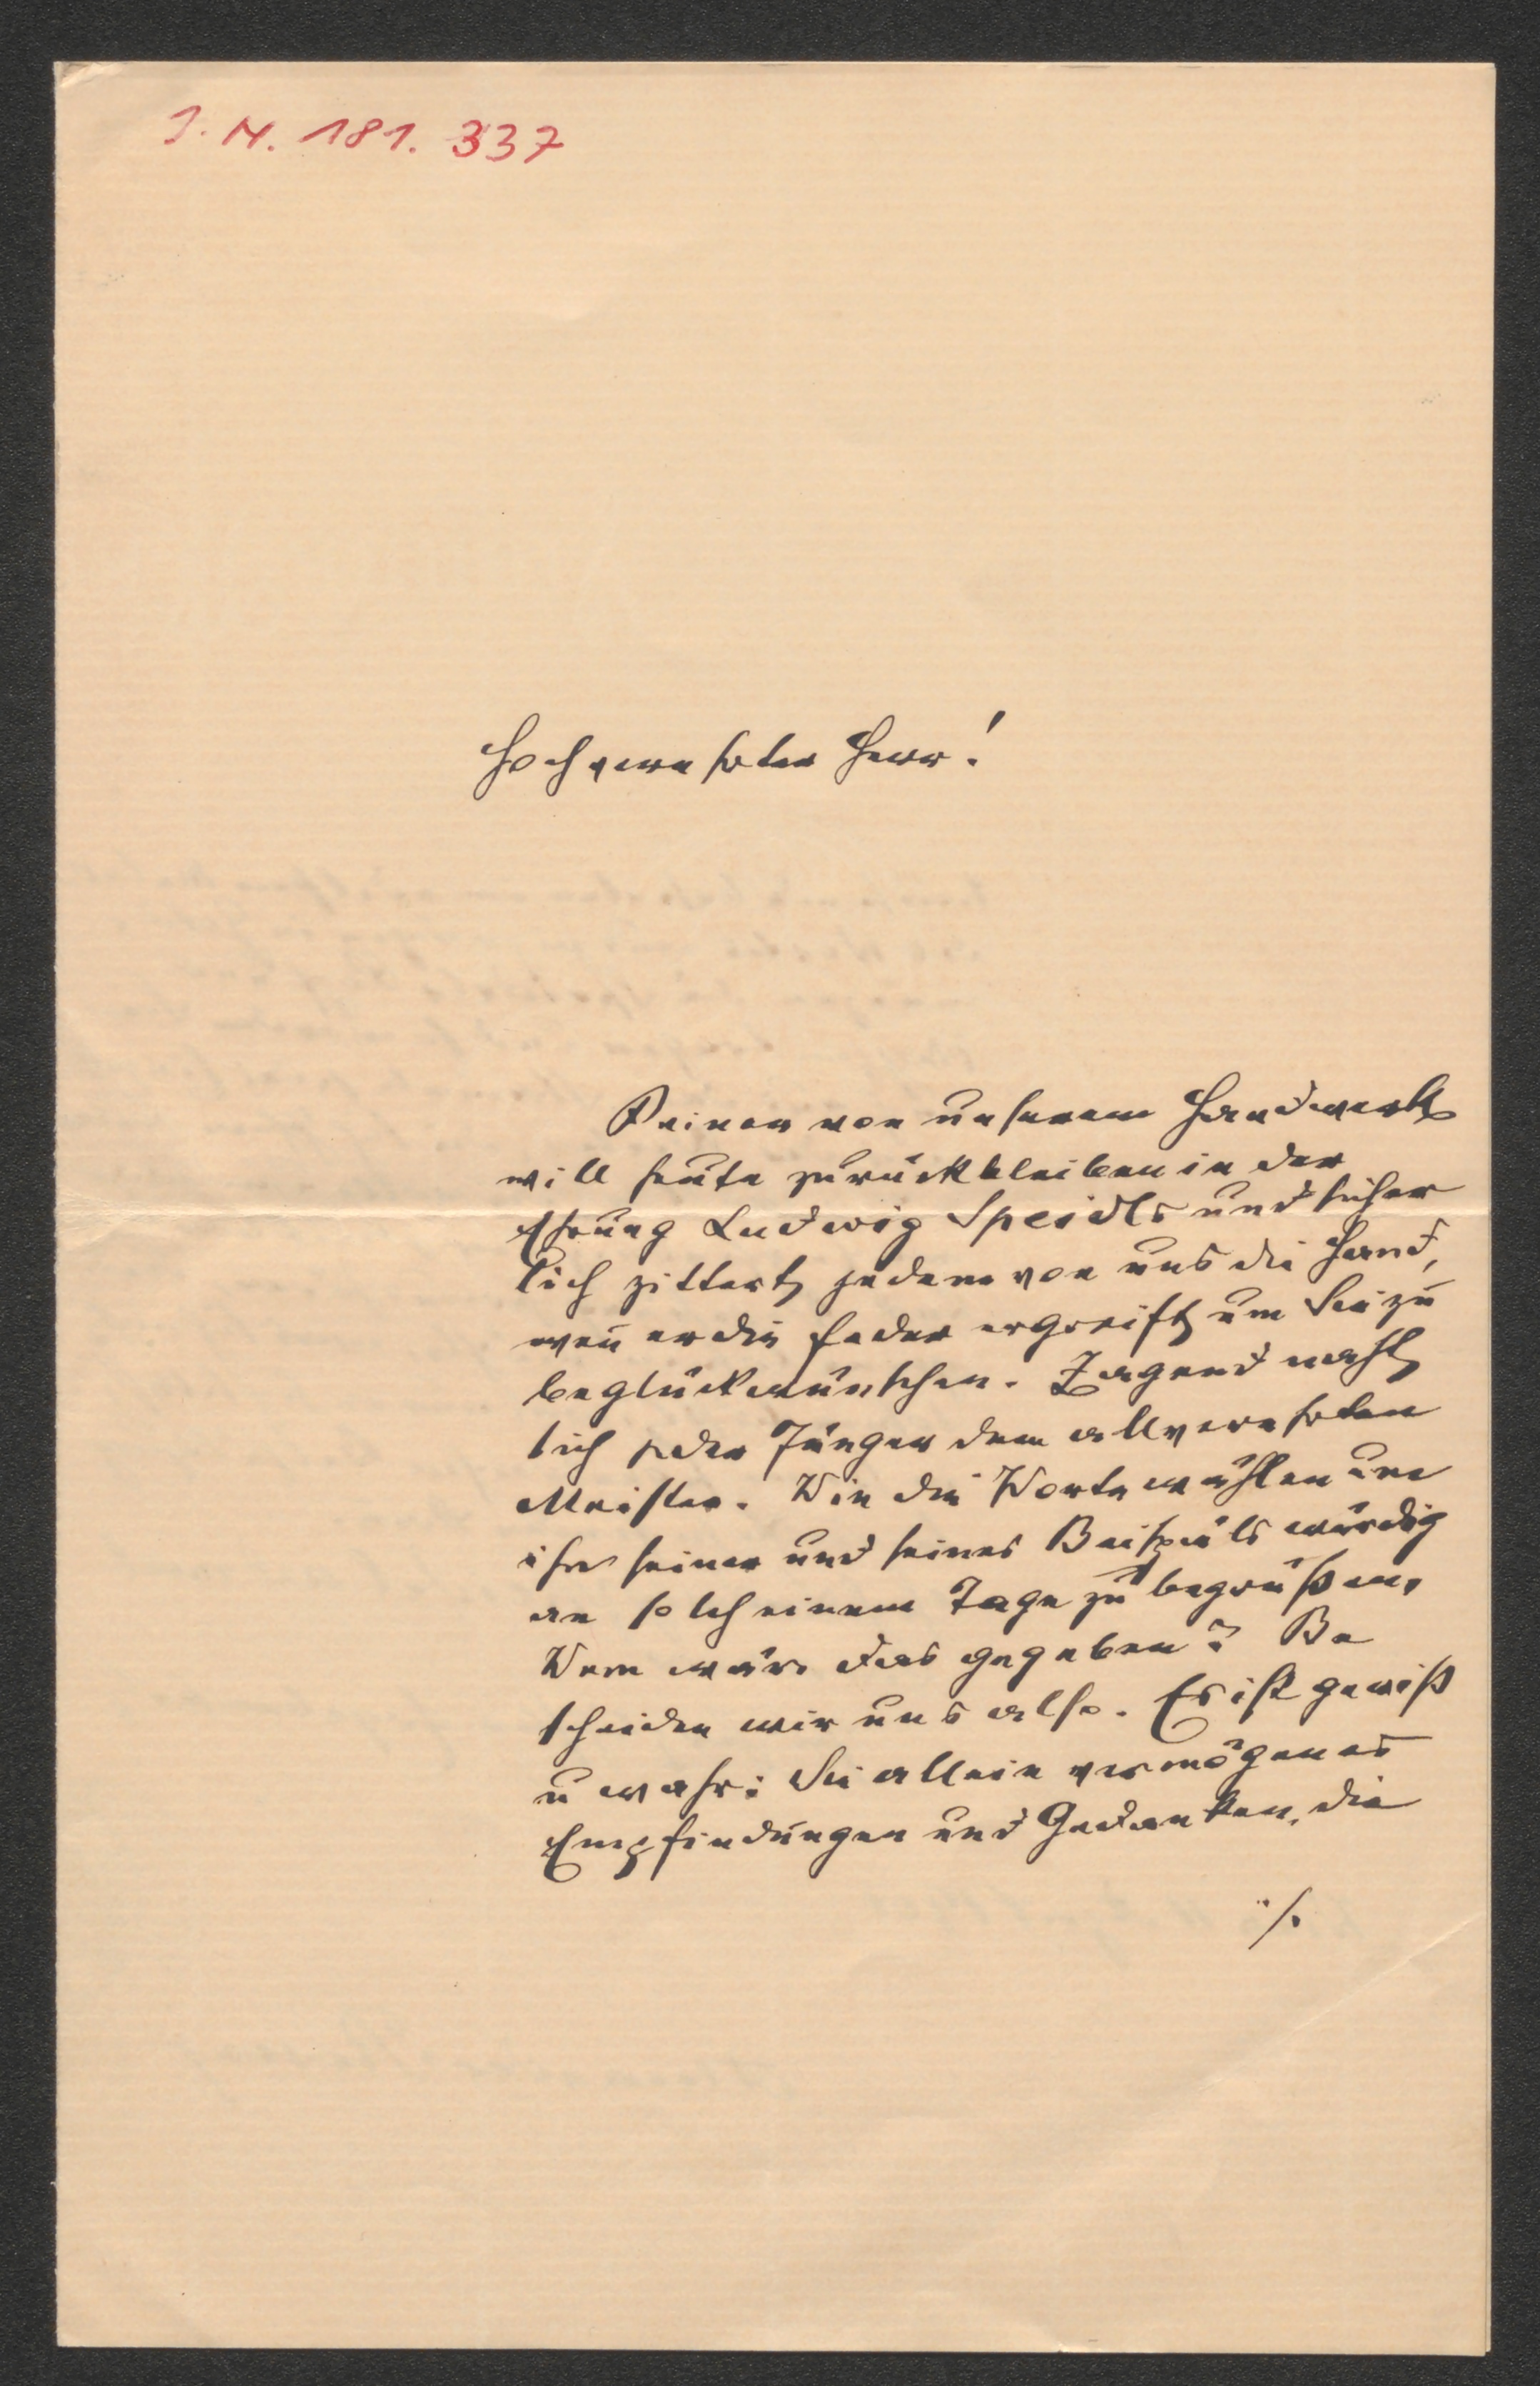 I. N. 181. 337
Hochverehrter Herr!
Keiner von unserem Handwerk
will heute zurückbleiben in der
Ehrung Ludwig Speidls und sicher
lich zittert jedem von uns die Hand,
wen̄ er die Feder ergreift um Sie zu
beglückwünschen. Zagend naht
sich jeder Jünger dem allverehrten
Meister. Wie die Worte wählen um
ihn seiner und seines Beispiels würdig
an solch einem Tage zu begrüßen,
Wem wäre das gegeben? Be
scheiden wir uns also. Es ist gewiß
u wahr: Sie allein vermögen es
Empfindungen und Gedanken, die
./.